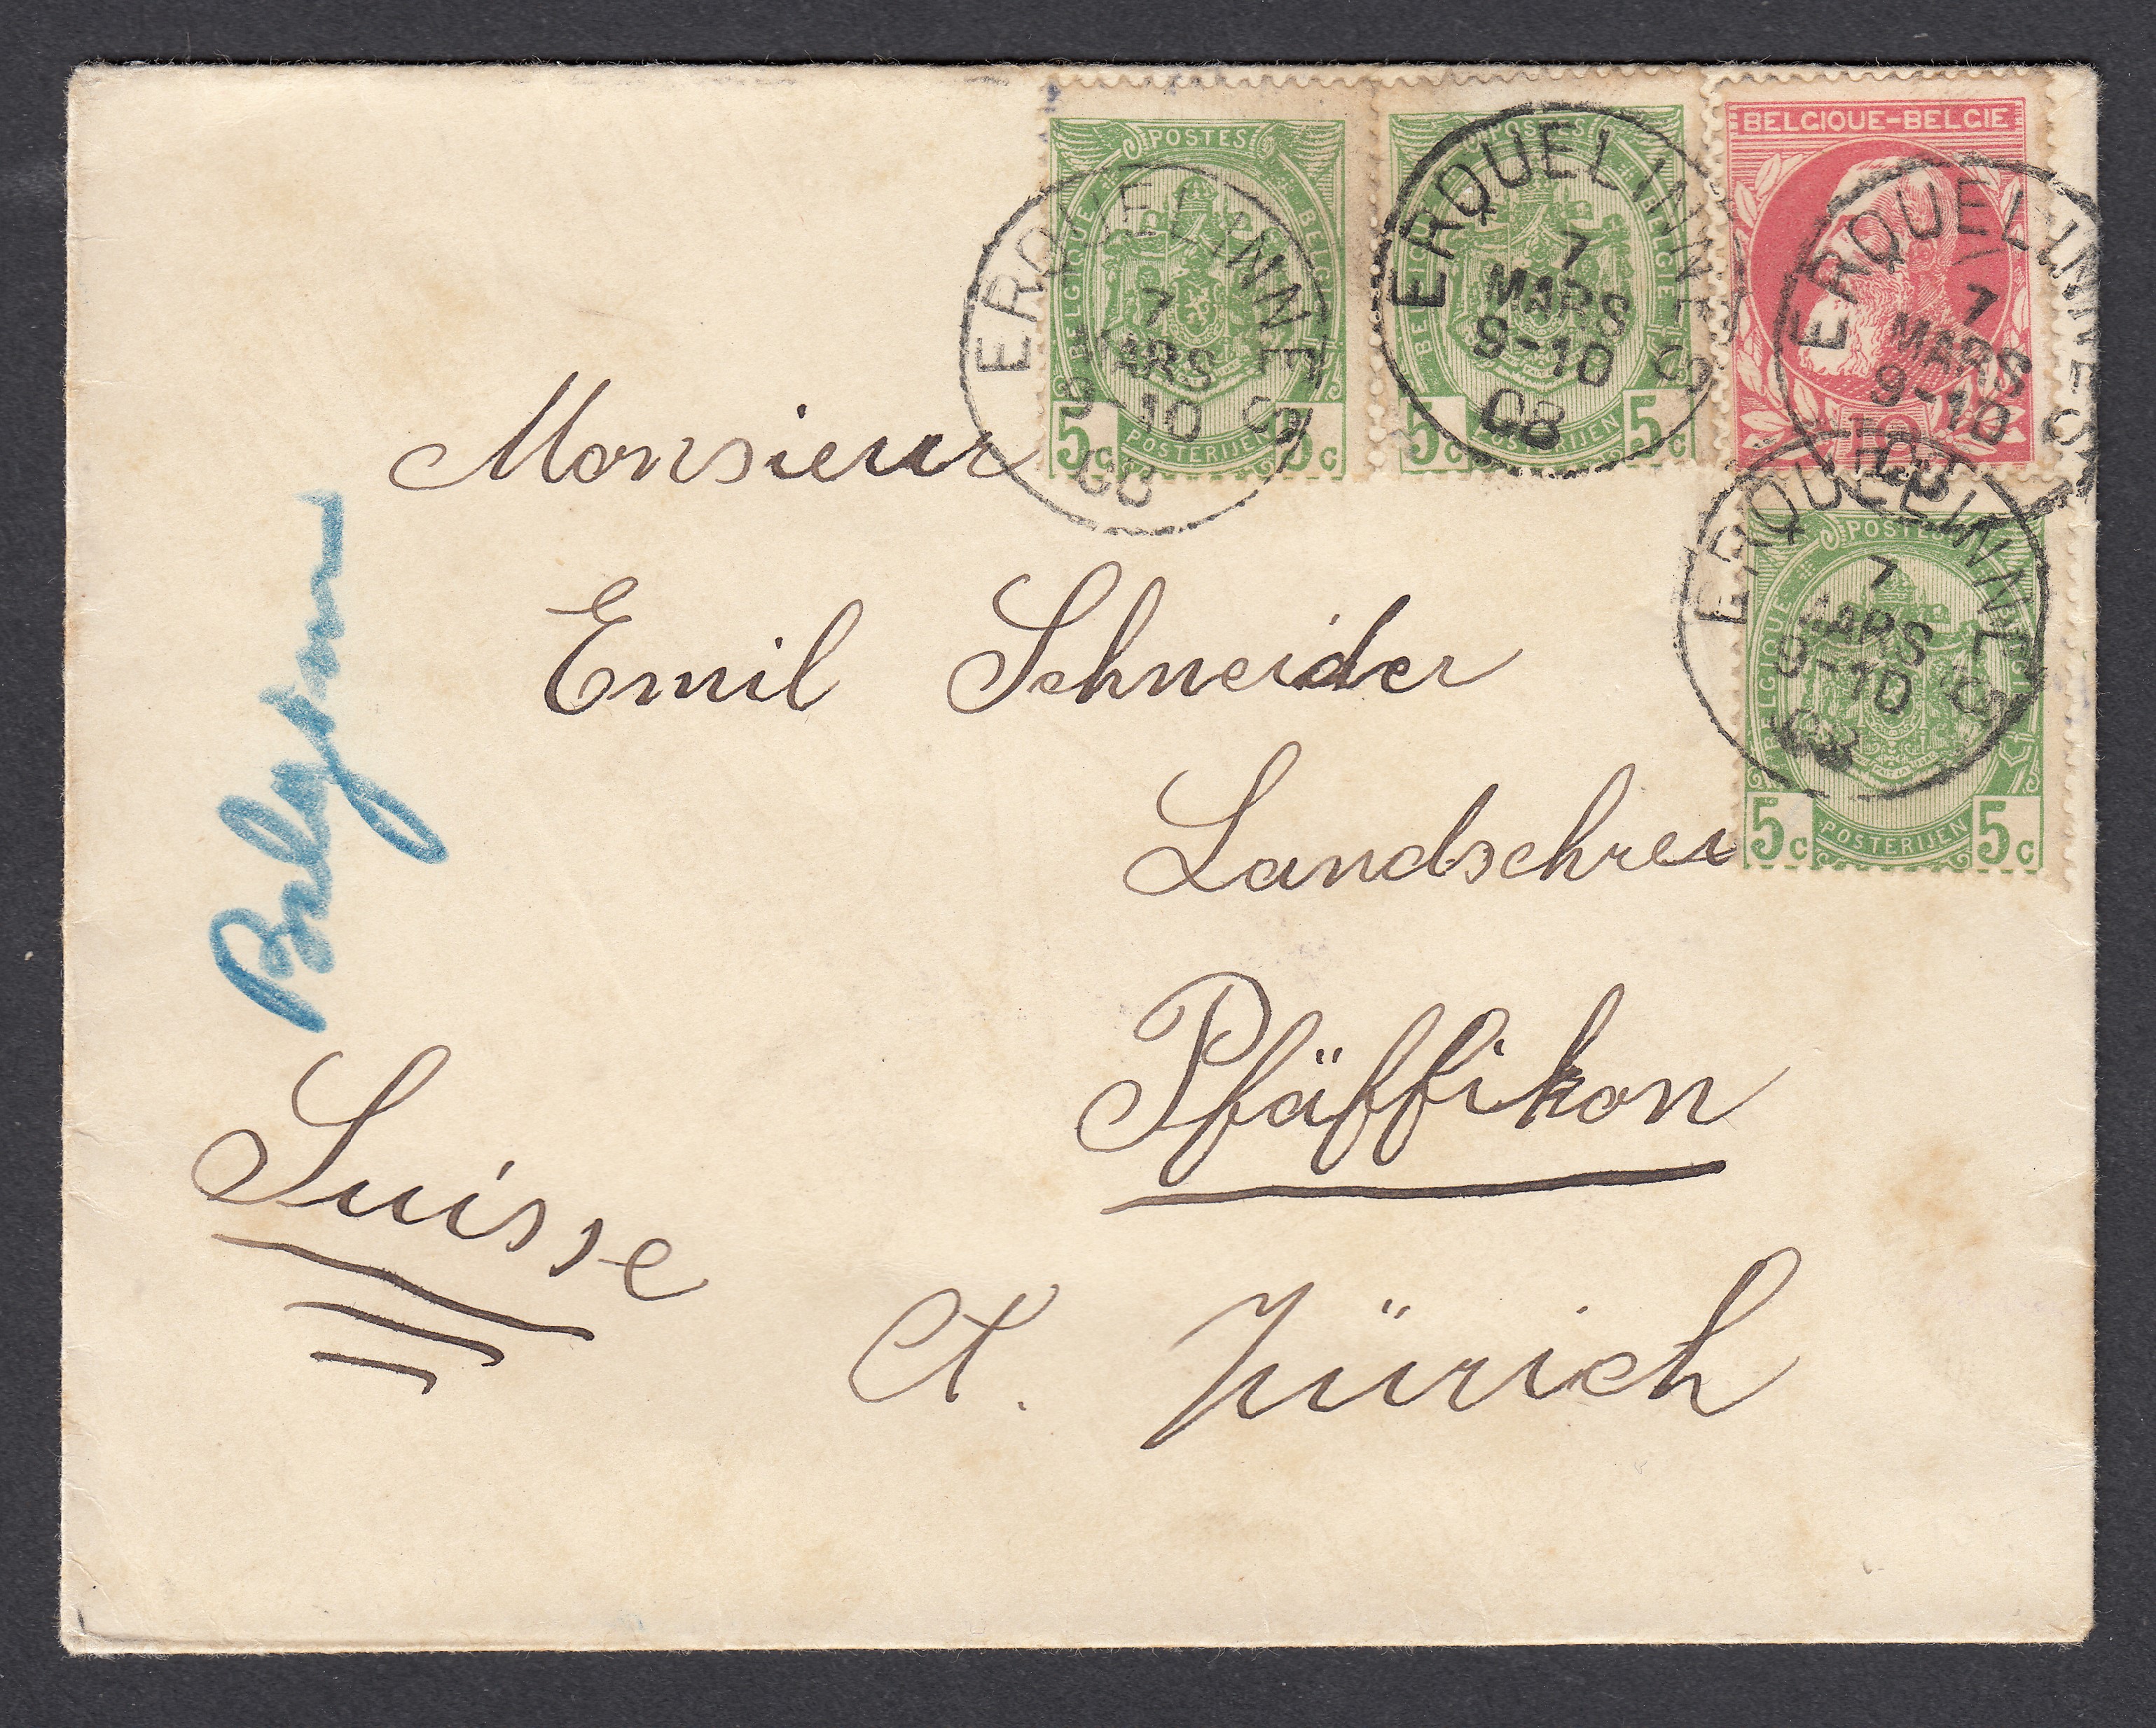 POSTES
BELGIQUE BELGIE
5c POSTERIJEN 5c
ERQUELINNES
7
MARS
9-10
08
POSTES
BELGIQUE BELGIE
5c POSTERIJEN 5c
ERQUELINNES
7
MARS
9-10
08
BELGIQUE-BELGIE
10
ERQUELINNES
7
MARS
9-10
POSTES
BELGIQUE BELGIE
5c POSTERIJEN 5c
ERQUELINNES
7
MARS
9-10
08
Monsieur
Emil Schneider
Landschrei
Pfäffikon
Ct. Zürich
Suisse
Belgium